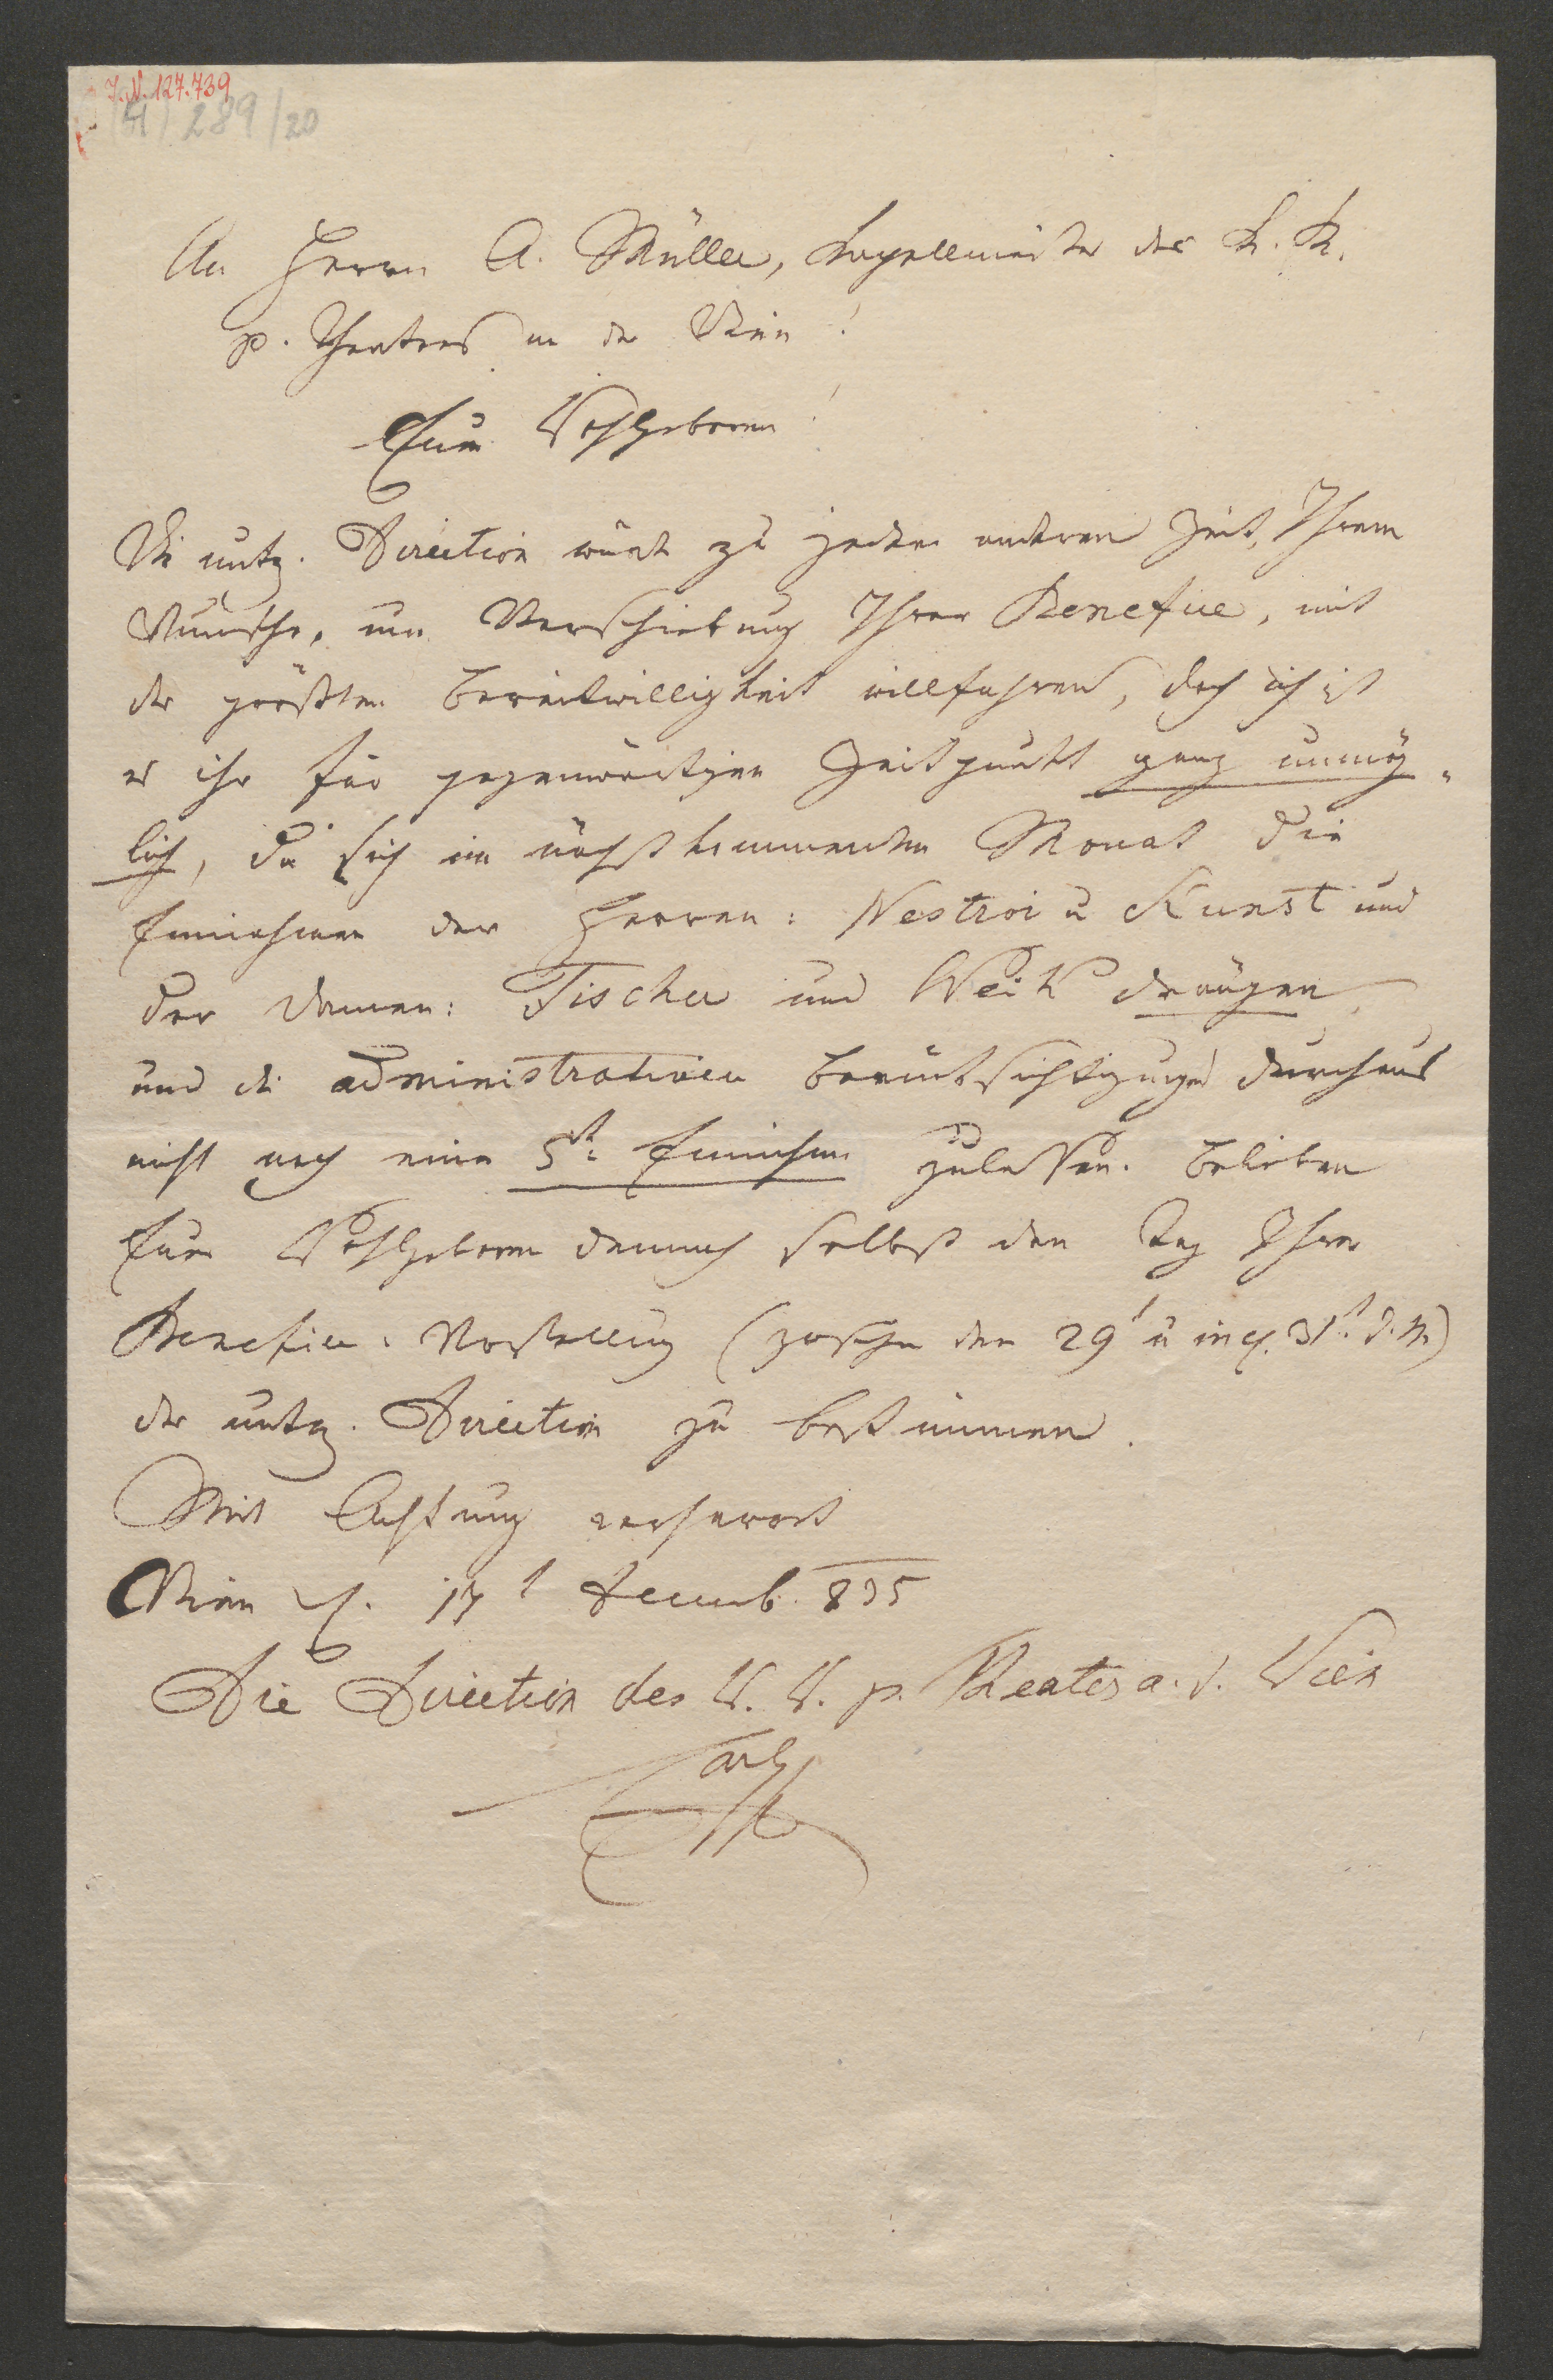 I.N. 127.739
(H) 289/20
An Herrn A. Müller, Kapellmeister des k. k.
p. Theaters an der Wien!
Euer Wohlgeboren!
Die untz. Direction würde zu jeder anderen Zeit, Ihrem
Wunsche, um Verschiebung Ihrer Benefice, mit
der größten Bereitwilligkeit willfahren, doch ist
es ihr für gegenwärtigen Zeitpunkt ganz unmög-
lich, da sich im nächstkommenden Monat die
Einnahmen der Herren: Nestroi u Kunst und
der Damen: Fischer und Weik drängen,
und die administrativen Berücksichtigungen durchaus
nicht noch eine 5te Einnahme zulassen. Belieben
Euer Wohlgeboren demnach selbst den Tag Ihrer
Benefice-Vorstellung (zwischen den 29t u incl. 31t d. M.)
der untz. Direction zu bestimmen.
Mit Achtung verharrt
Wien 17t Decemb. 835
Die Direction des k. k. p. Theaters a. d. Wien
Carl